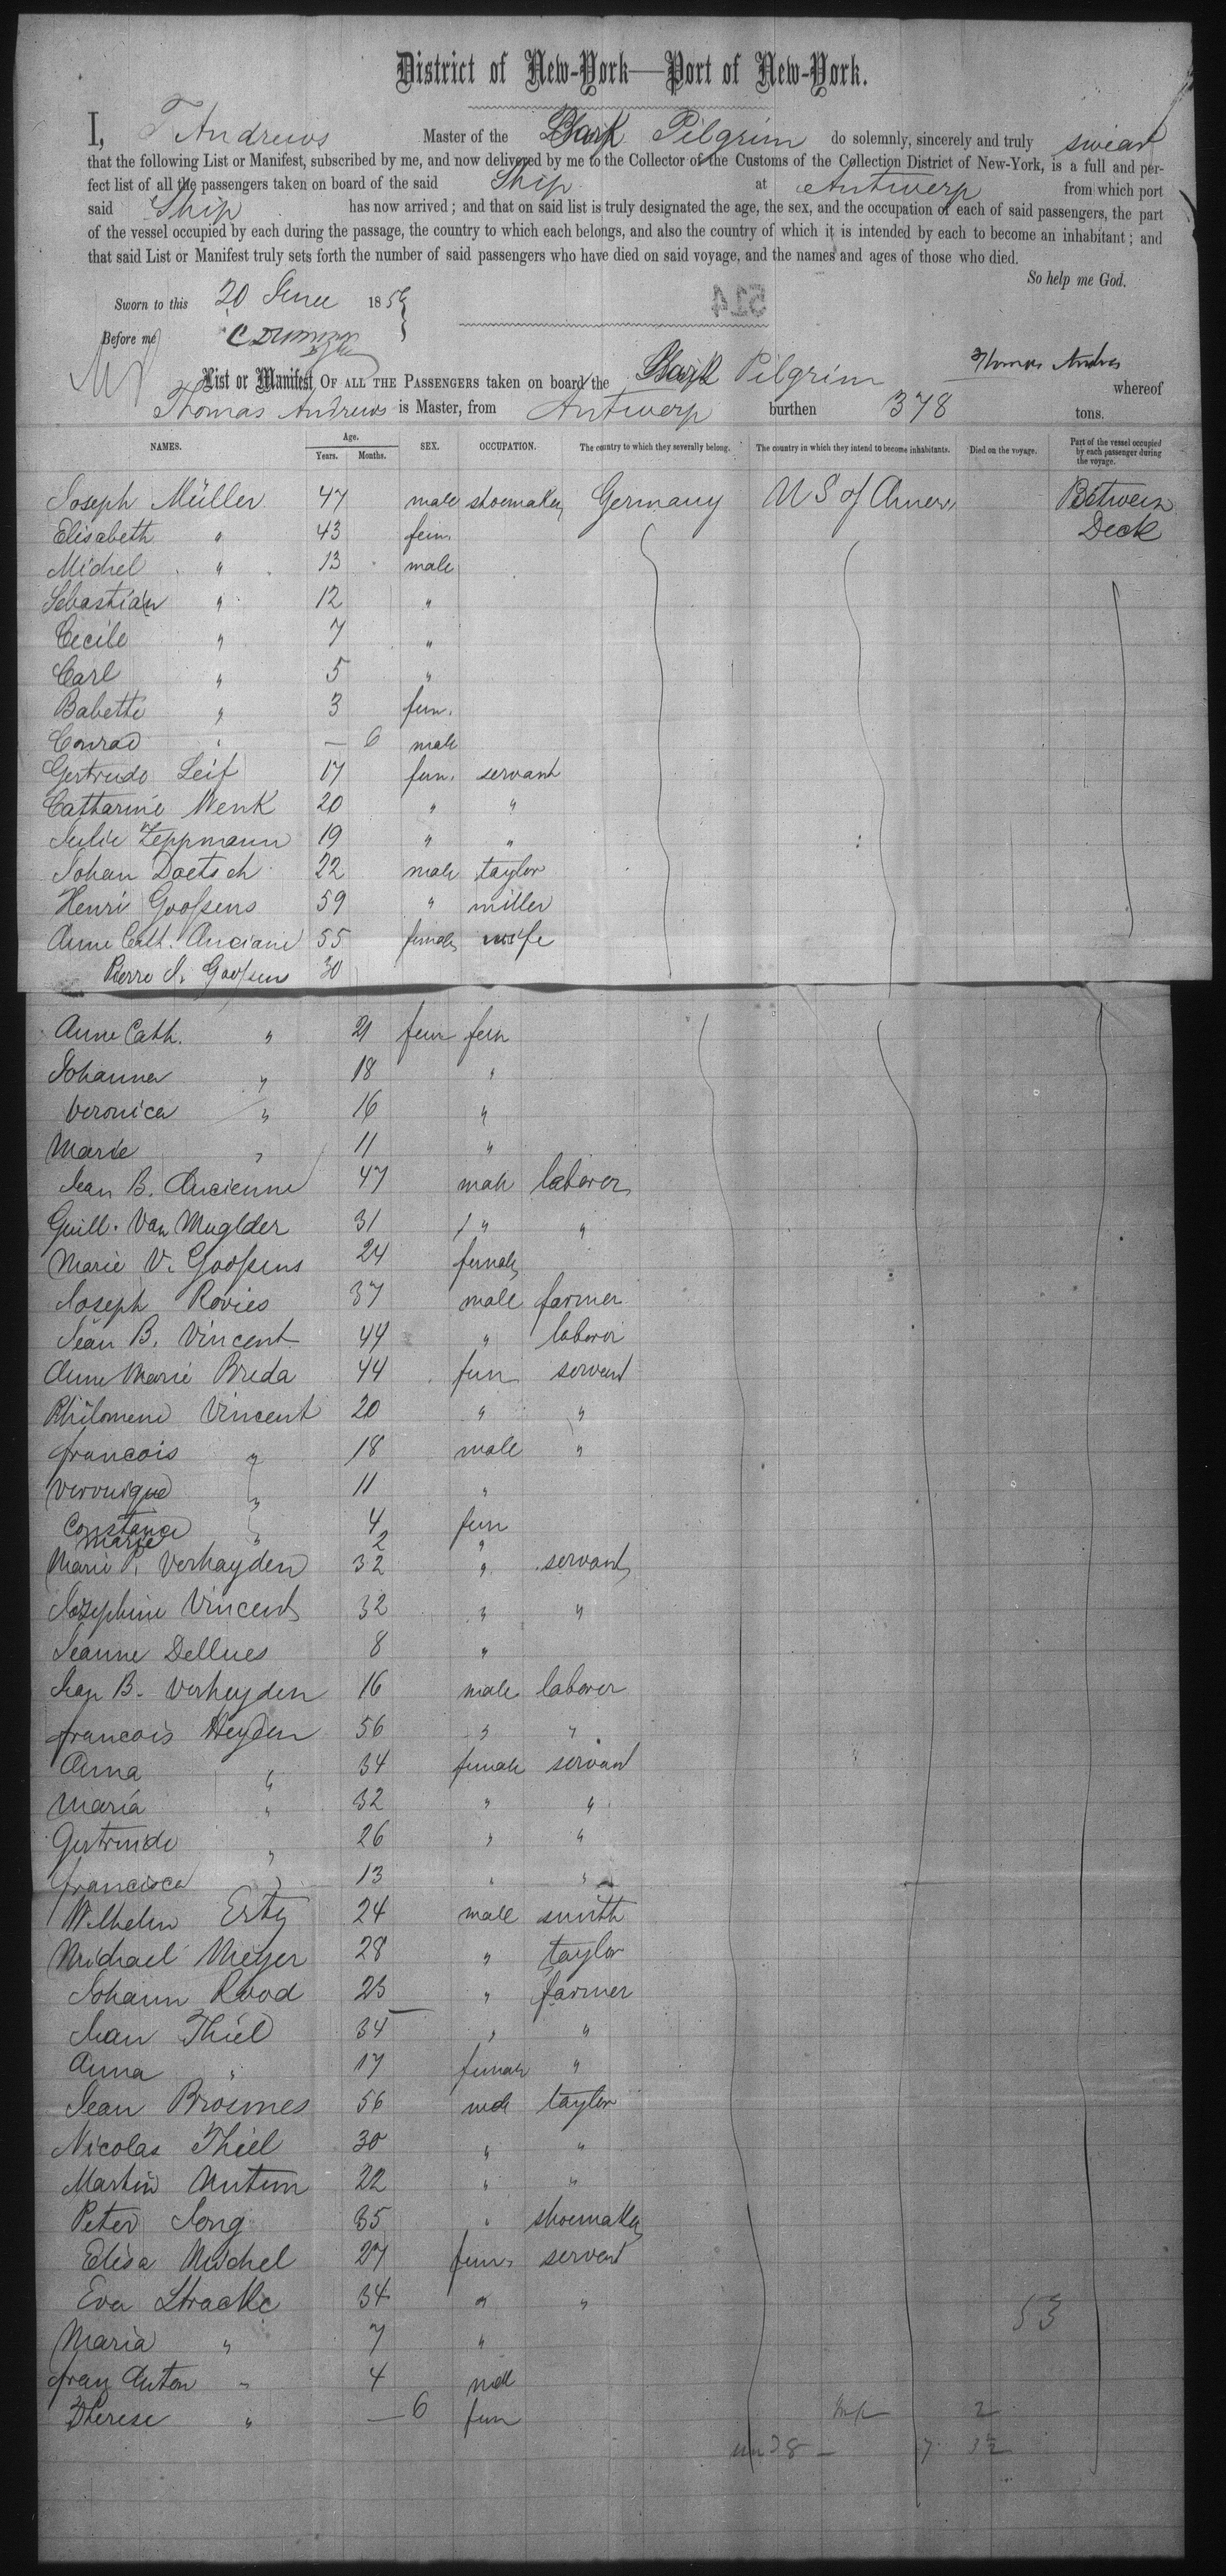 District of New-York—Port of New-York.
I, T Andrews Master of the Bark Pilgrim do solemnly, sincerely and truly swear
that the following List or Manifest, subscribed by me, and now delivered by me to the Collector of the Customs of the Collection District of New-York, is a full and per-
fect list of all the passengers taken on board of the said Ship at Antwerp from which port
said Ship has now arrived; and that on said list is truly designated the age, the sex, and the occupation of each of said passengers, the part
of the vessel occupied by each during the passage, the country to which each belongs, and also the country of which it is intended by each to become an inhabitant; and
that said List or Manifest truly sets forth the number of said passengers who have died on said voyage, and the names and ages of those who died.
So help me God.
Sworn to this 20 June 185
514
Before me
Thomas Andrews
List or Manifest OF ALL THE PASSENGERS taken on board the Bark Pilgrim whereof
Thomas Andrews is Master, from Antwerp burthen 378 tons.
NAMES. Age. Years. Months. SEX. OCCUPATION. The country to which they severally belong. The country in which they intend to become inhabitants. Died on the voyage. Part of the vessel occupied by each passenger during the voyage.
Joseph Müller 47 male shoemaker Germany U S of Amer. Between
Elisabeth " 43 fem. Deck
Michel " 13 male
Sebastian " 12 "
Cecile " 7 "
Carl " 5 "
Babette " 3 fem.
Conrad " — 6 male
Gertrude Leif 17 fem. servant
Catharine Wenk 20 " "
Julie Zeppmann 19 " "
Johan Doetsch 22 male taylor
Henri Goossens 59 " miller
Anne Cath. Anciane 55 female wife
Pierre J. Goossens 30
Anne Cath. " 21 fem fem
Johanna " 18 "
Veronica " 16 "
Marie " 11 "
Jean B. Ancienne 47 male laborer
Guill. Van Muglder 31 " "
Marie V. Goossens 24 female
Joseph Rovies 37 male farmer
Jean B. Vincent 44 " laborer
Anne Marie Breda 44 fem servant
Philomene Vincent 20 " "
francois " 18 male "
Veronique " 11 "
Constance " 4 fem
Marie " 2 "
Marie P. Verhayden 32 " servant
Josephine Vincent 32 " "
Jeanne Dellues 8 "
Jean B. Verheyden 16 male laborer
francois Heyden 56 " "
Anna " 34 female servant
Maria " 32 " "
Gertruide " 26 " "
francisca " 13 " "
Wilhelm Erty 24 male smith
Michael Meyer 28 " taylor
Johann Rood 23 " farmer
Jean Thiel 34 " "
Anna " 17 female "
Jean Broemes 56 male taylor
Nicolas Thiel 30 " "
Martin 22 " "
Peter Jong 35 " shoemaker
Elisa Michel 27 fem. servant
Eva Stracke 34 " "
53
Maria " 7 "
franz Anton " 4 male
Therese " — 6 fem
2
8 — 7